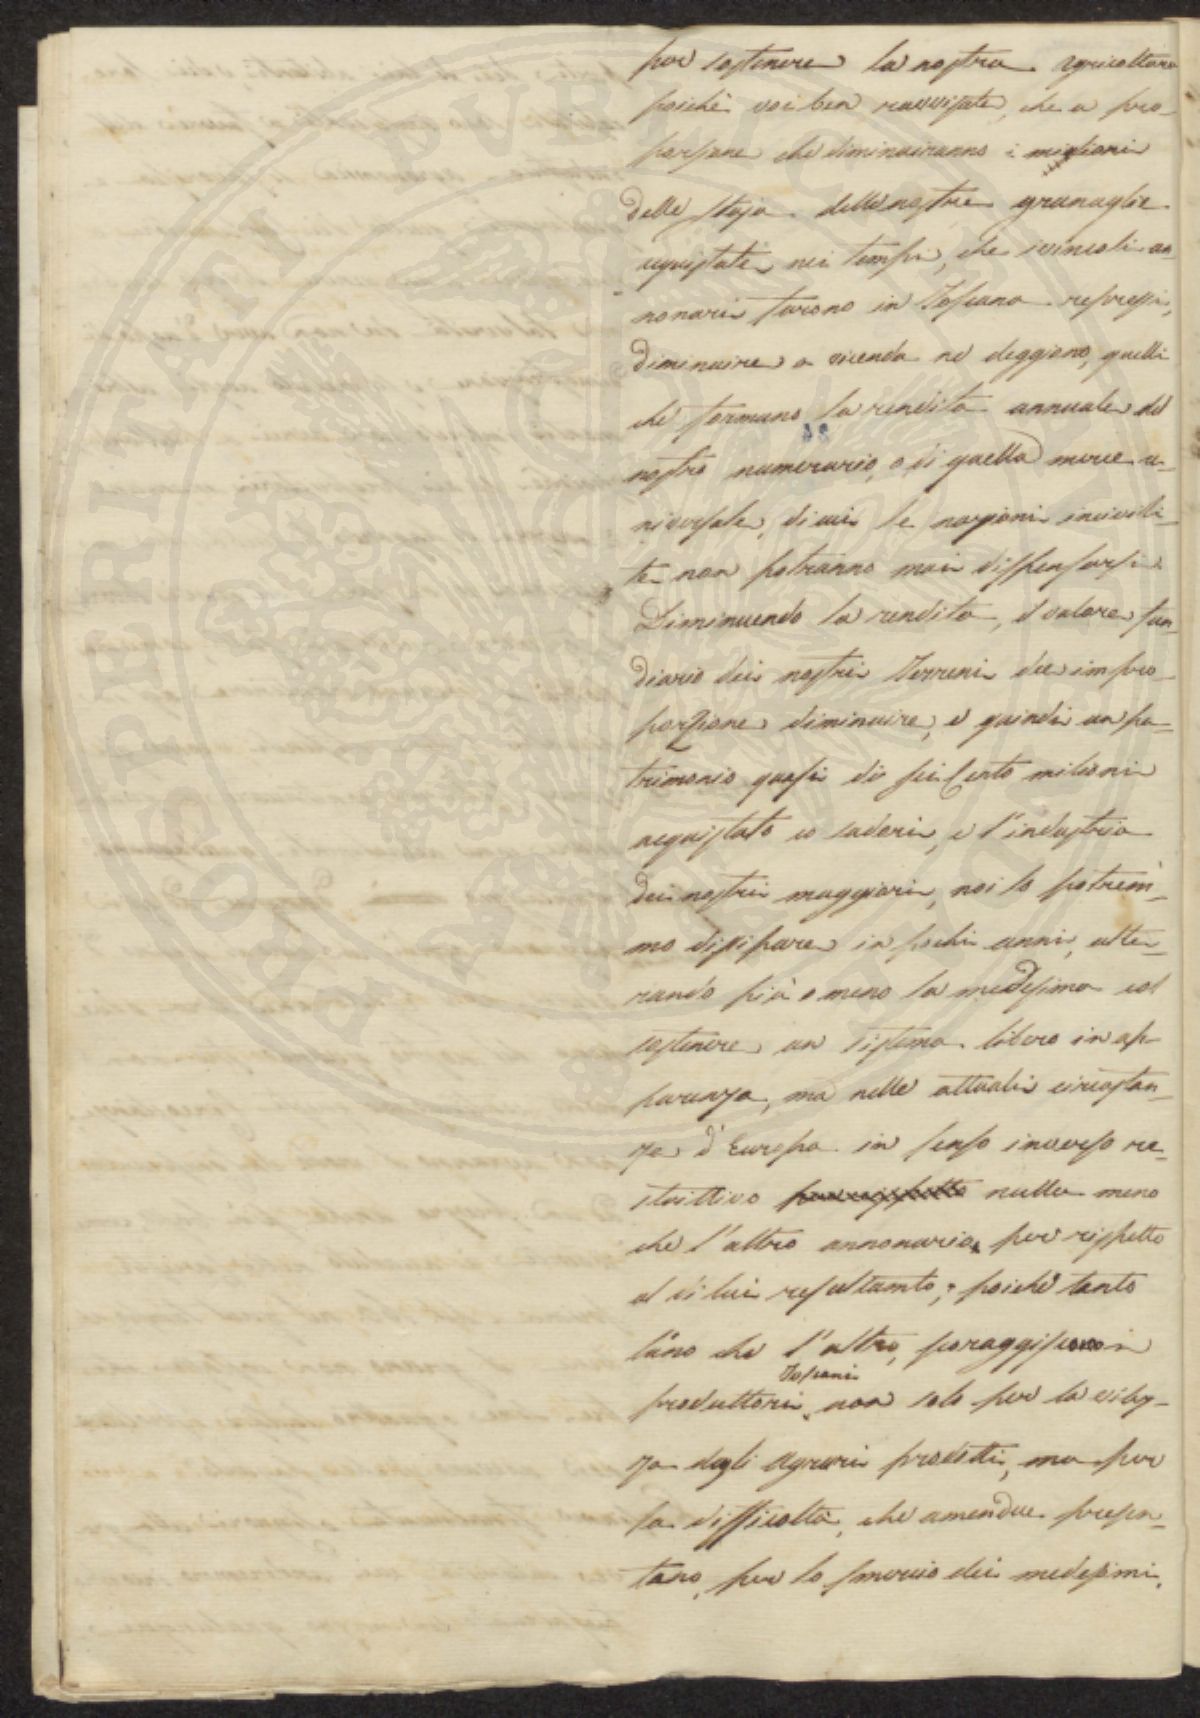 per sostenere la nostra Agricoltura
poichè voi ben ravvisate, che a pro-
porzione che diminuiranno i migliori
delle staja delle nostre granaglie
acquistate nei tempi, che i vincoli an-
nonari furono in Toscana repressi,
diminuire a vicenda ne deggiono, quelli
che formano la rendita annuale del
nostro numerario, o di quella merce u-
niversale, di cui le nazioni incivili-
te non potranno mai dispensarsi.
Diminuendo la rendita, il valore fun-
diario dei nostri Terreni dee in pro-
porzione diminuire, e quindi un pa-
trimonio quasi di seicento milioni
acquistato co sudori, e l'industria
dei nostri maggiori, noi lo potrem-
mo dissipare in pochi anni, alte-
rando più o meno la medesima col
sostenere un sistema libero in ap-
parenza, ma nelle attuali circostan-
ze d'Europa in senso inverso re-
strittivo nulla meno
che l'altro annonario, per rispetto
al di lui resultamto; poichè tanto
l'uno che l'altro, scoraggiscono i
produttori Toscani non solo per la vilez-
za degli Agrari prodotti, ma per
la difficoltà, che amendue presen-
tano, per lo smercio dei medesimi,
PROSPERITATI PVBLICAE AVGENDAE